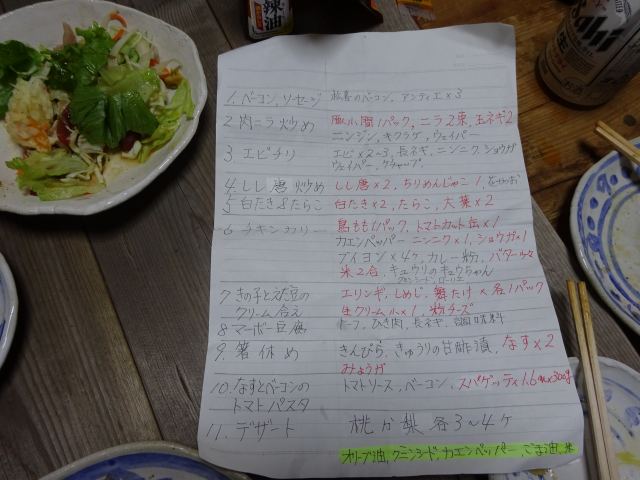 辣油
Asahi
1. ベーコン, ソーセージ ベーコン, アンティエ×3
2 肉ニラ炒め 1パック, ニラ2束, 玉ネギ2
ニンジン, キクラゲ, ウェイパー
3. エビチリ エビ×2~3, 長ネギ, ニンニク, ショウガ
ウェイパー, ケチャップ
4. しし唐炒め しし唐×2, ちりめんじゃこ1,
5 白たき&たらこ 白たき×2, たらこ, 大葉×2
6 チキンカリー 鳥もも1パック, トマトカット缶×1
カエンペッパー ニンニク×1, ショウガ×1
ブイヨン×4ケ, カレー粉, バター
米2合, キュウリのキュウちゃん
7 きの子と大豆の エリンギ, しめじ, 舞たけ×各1パック
クリーム合え 生クリーム小×1, 粉チーズ
8 マーボー豆腐 トーフ, ひき肉, 長ネギ, 調味料
9. 箸休め きんぴら, きゅうりの甘酢漬, なす×2
みょうが
10. なすとベーコンの トマトソース, ベーコン, スパゲッティ1.6m×300g
トマトパスタ
11. デザート 桃か梨各3~4ケ
オリーブ油, クミンシード, カエンペッパー, ごま油, 米